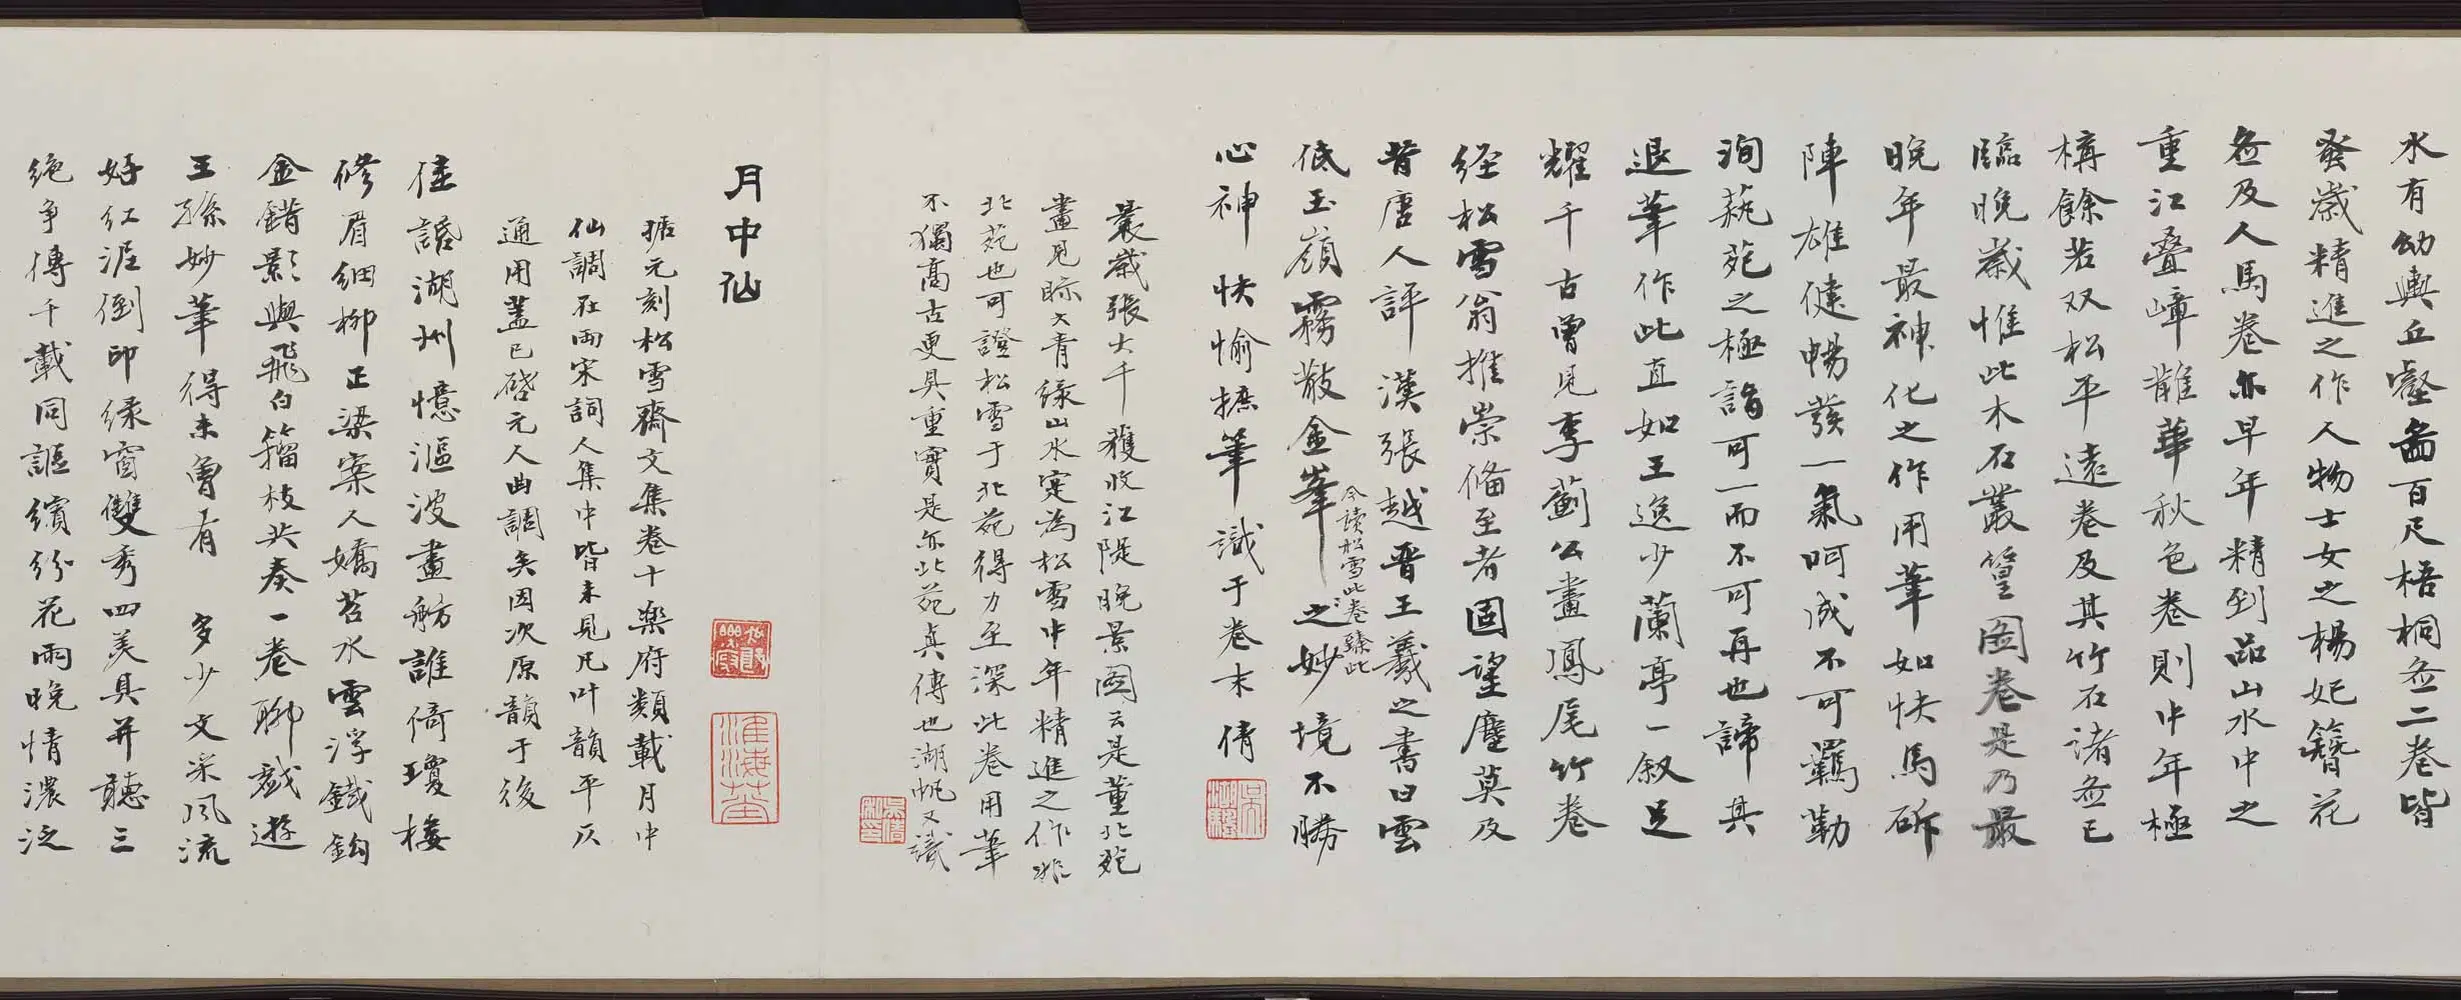 水有幼輿丘壑啚百尺梧桐啚二卷皆
蚤歲精進之作人物士女之楊妃簪花
啚及人馬卷亦早年精到品山水中之
重江疊嶂鵲華秋色卷則中年極
構餘若双松平遠卷及其竹石諸啚已
臨晚歲惟此木石叢篁圖卷是乃最
晚年最神化之作用筆如快馬斫
陣雄健暢發一氣呵成不可羈勒
洵蓺苑之極詣可一而不可再也諦其
退筆作此直如王逸少蘭亭一敘足
耀千古曾見李薊公畫鳳尾竹卷
經松雪翁推崇備至者固望塵莫及
昔唐人評漢張越晉王羲之書曰雲
今讀松雪此卷臻此
低玉嶺霧散金峯之妙境不勝
心神快愉摭筆識于卷末倩
曩歲張大千獲收江隄晚景圖云是董北苑
畫見眎大青緑山水寔為松雪中年精進之作非
北苑也可證松雪于北苑得力至深此卷用筆
不獨高古更具重實是亦北苑真傳也湖帆又識
月中仙
據元刻松雪齋文集卷十樂府類載月中
仙調在兩宋詞人集中皆未見凡叶韻平仄
通用蓋已啓元人曲調矣因次原韻于後
佳話湖州憶漚波畫舫誰倚瓊樓
修眉細柳正梁案人嬌苕水雲浮鐵鉤
金錯影與飛白籀枝共奏一卷聊戲遊
王孫妙筆得未曾有 多少文采風流
好紅涯倒印緑窗雙秀四美具并聽三
絶争傳千載同謳繽紛花雨晚情濃泛